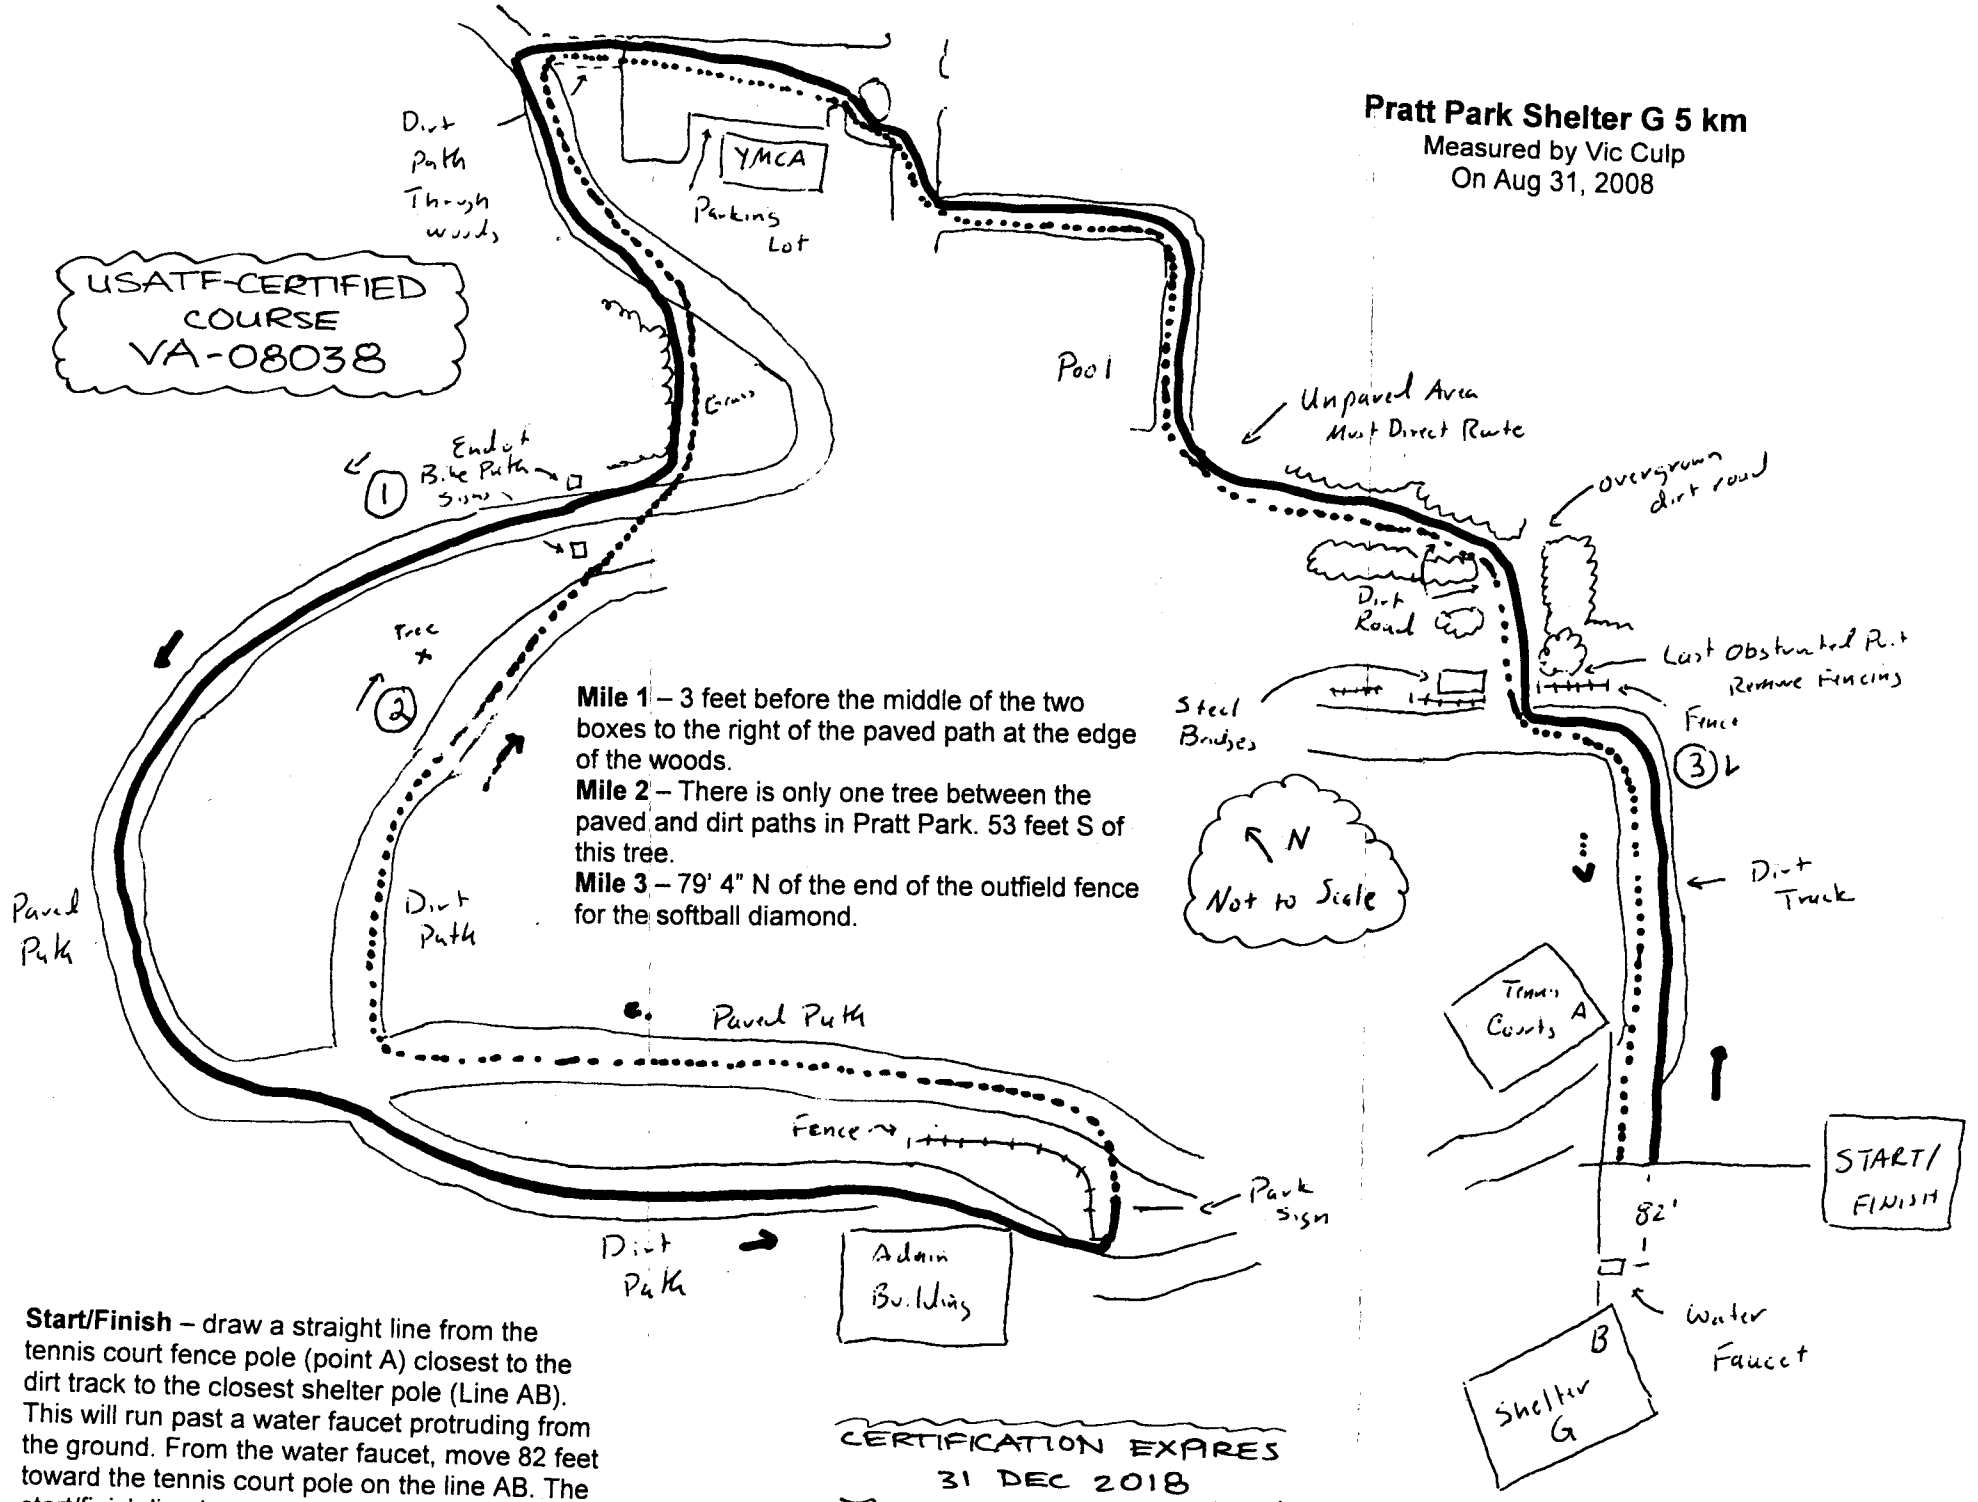 Pratt Park Shelter G 5 km
Measured by Vic Culp
On Aug 31, 2008
Dirt
Path
Through
woods
YMCA
Parking
Lot
USATF-CERTIFIED
COURSE
VA-08038
Grass
Pool
Unpaved Area
Most Direct Route
overgrown
dirt road
End of
Bike Path
Signs
1
Tree
2
Dirt
Road
Last Obstructed
Remove Fencing
Steel
Bridges
Fence
3
Mile 1 – 3 feet before the middle of the two
boxes to the right of the paved path at the edge
of the woods.
Mile 2 – There is only one tree between the
paved and dirt paths in Pratt Park. 53 feet S of
this tree.
Mile 3 – 79' 4" N of the end of the outfield fence
for the softball diamond.
N
Not to Scale
Dirt
Track
Paved
Path
Dirt
Path
Paved Path
Tennis
Courts A
Fence
Park
Sign
START/
FINISH
82'
Dirt
Path
Admin
Building
Water
Faucet
B
Shelter
G
Start/Finish – draw a straight line from the
tennis court fence pole (point A) closest to the
dirt track to the closest shelter pole (Line AB).
This will run past a water faucet protruding from
the ground. From the water faucet, move 82 feet
toward the tennis court pole on the line AB. The
CERTIFICATION EXPIRES
31 DEC 2018